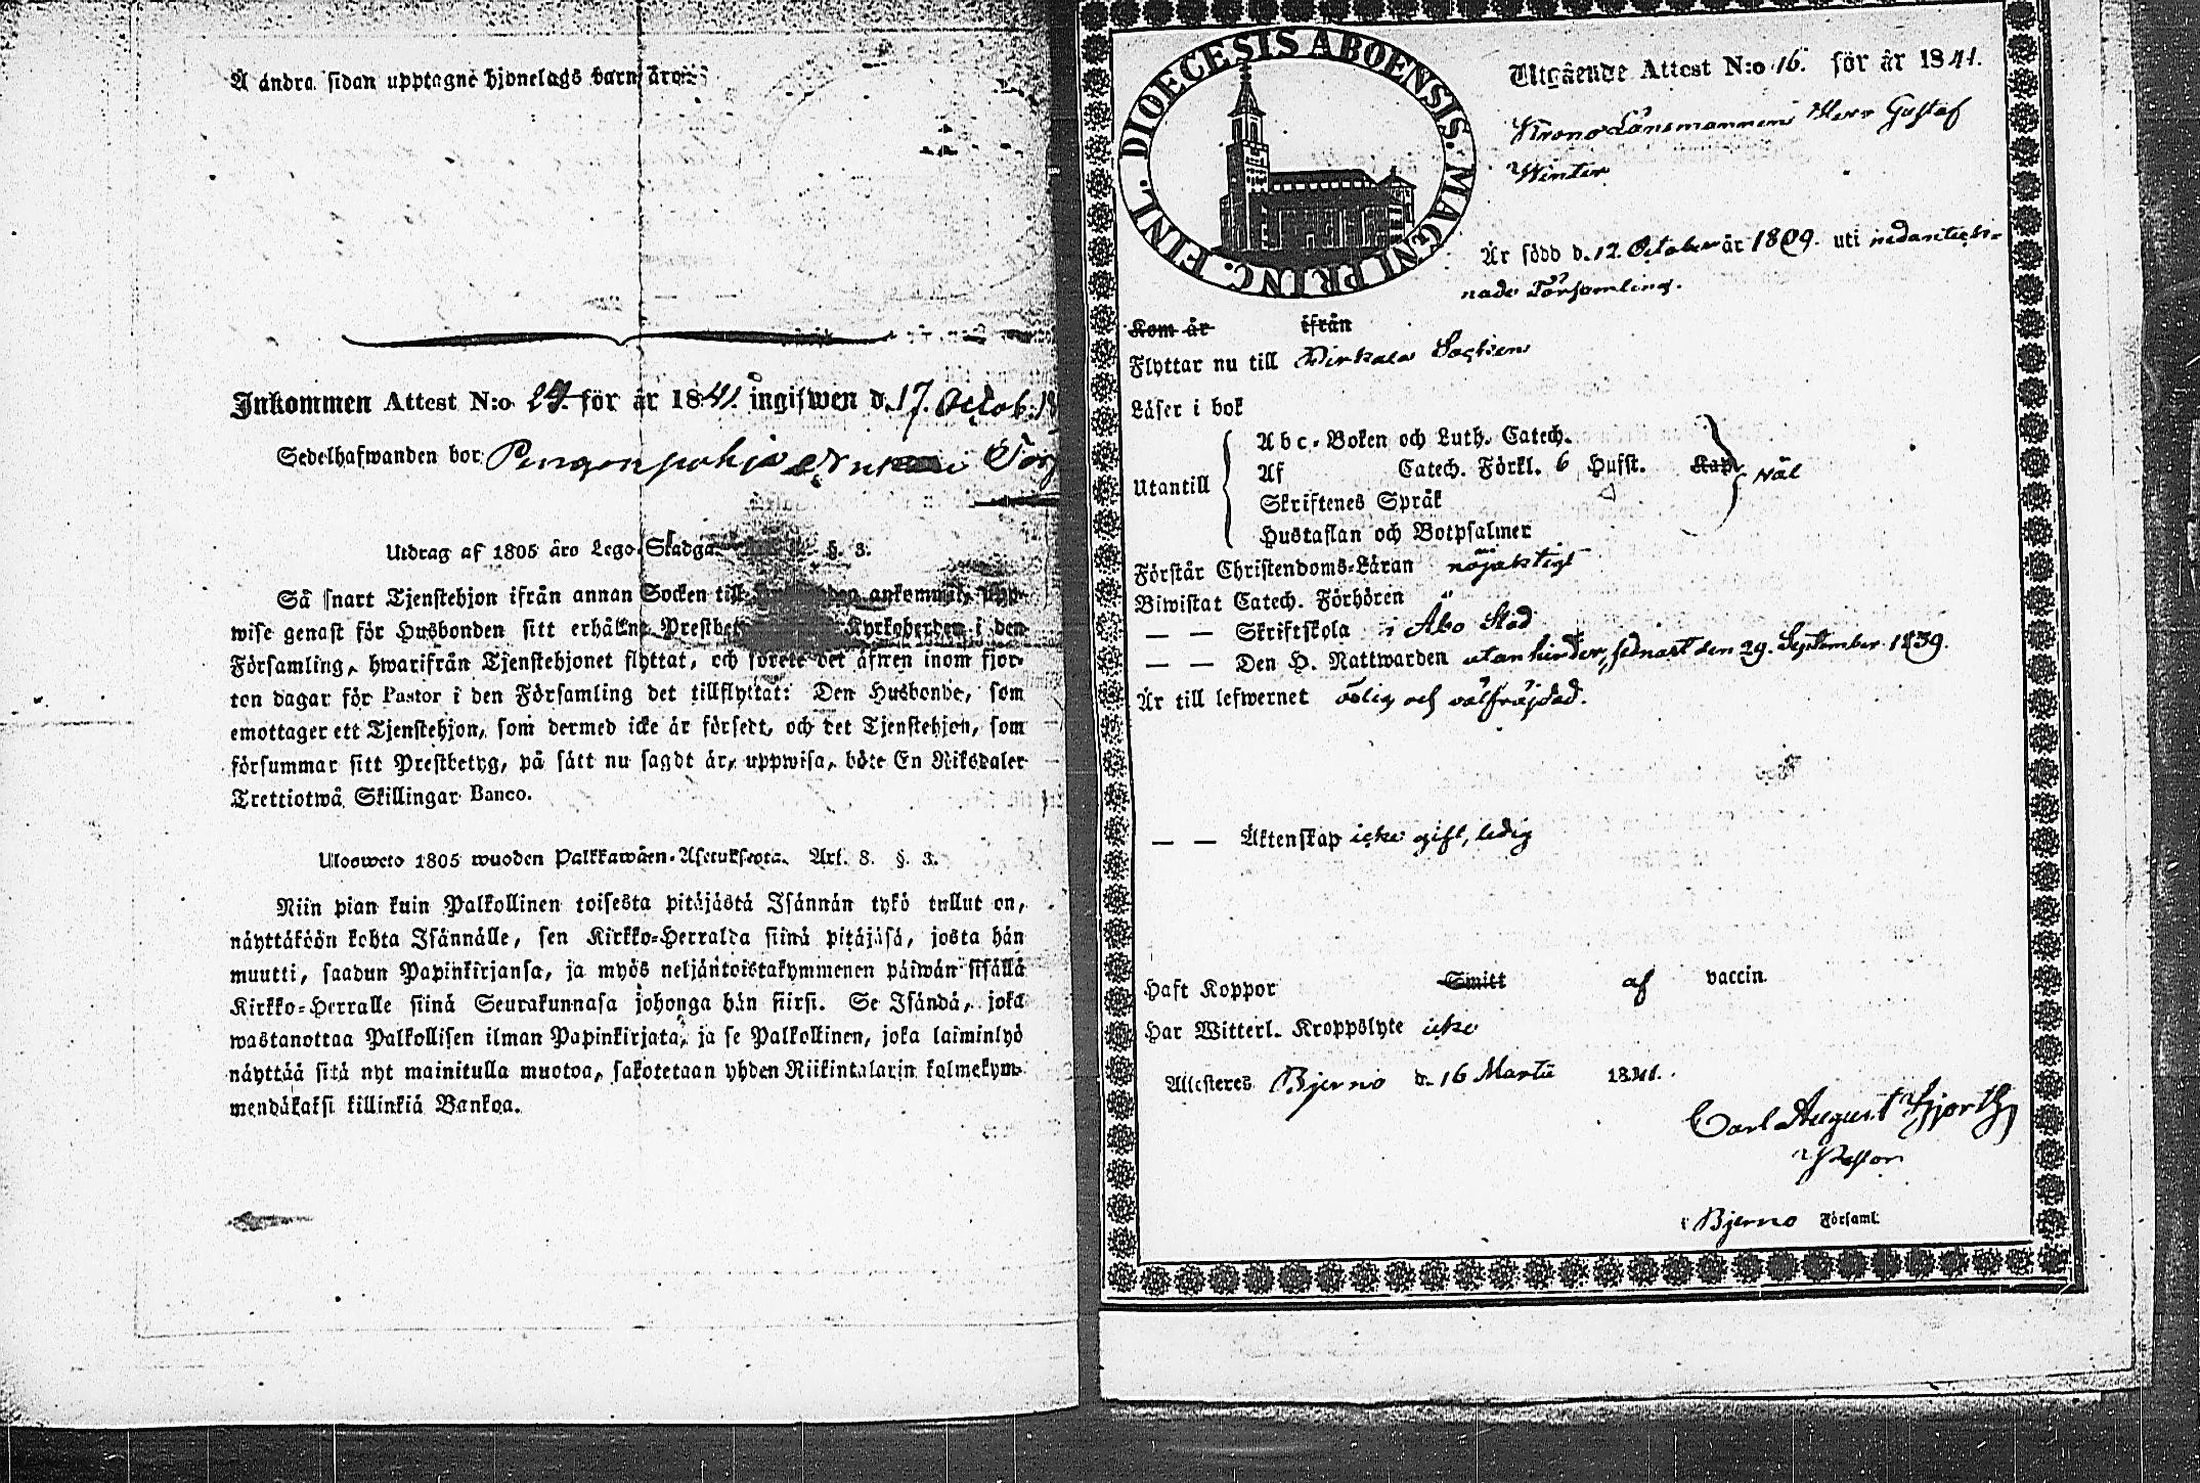 Å andra sidan upptagne hjonelags barn äro:
Inkommen Attest N:o 24. för år 1841. ingifwen d. 17. Octob. 18
Sedelhafwanden bor
Utdrag af 1805 års Lego-Stadga §. 3.
Så snart Tjenstehjon ifrån annan Socken till ankommit, upp-
wise genast för Husbonden sitt erhållne Kyrkoherden i den
Församling, hwarifrån Tjenstehjonet flyttat, och förete det äfwen inom fjor-
ton dagar för Pastor i den Församling det tillflyttat: Den Husbonde, som
emottager ett Tjenstehjon, som dermed icke är försedt, och det Tjenstehjon, som
försummar sitt Prestbetyg, på sätt nu sagdt är, uppwisa, böte En Riksdaler
Trettiotwå Skillingar Banco.
Ulosweto 1805 wuoden Palkkawäen-Asetuksesta. Art. 8. §. 3.
Niin pian kuin Palkollinen toisesta pitäjästä Isännän tykö tullut on,
näyttäköön kohta Isännälle, sen Kirkko-Herralda siinä pitäjäsä, josta hän
muutti, saadun Papinkirjansa, ja myös neljäntoistakymmenen päiwän sisällä
Kirkko-Herralle siinä Seurakunnasa johonga hän siirsi. Se Isändä, joka
wastanottaa Palkollisen ilman Papinkirjata, ja se Palkollinen, joka laiminlyö
näyttää sitä nyt mainitulla muotoa, sakotetaan yhden Riikintalarin kolmekym-
mendäkaksi killinkiä Bankoa.
DIOECESIS ABOENSIS. MAGNI PRINC. FINL.
Utgående Attest N:o 16. för år 1841.
Krono Länsmannen Herr Gustaf
Winter
Är född d. 12. October år 1809. uti nedanteck-
nade Församling.
Kom år ifrån
Flyttar nu till Pirkala Sochen
Läser i bok
Abc-Boken och Luth. Catech.
Af Catech. Förkl. 6 Hufst. Kap.
Utantill väl
Skriftenes Språk
Hustaflan och Botpsalmer
Förstår Christendoms-Läran nöjaktigt
Biwistat Catech. Förhören "
— — Skriftskola i Åbo Stad
— — Den H. Nattwarden utan hinder, sednast den 29. September 1839.
Är till lefwernet ärlig och välfräjdad.
— — Äktenskap icke gift, ledig
Haft Koppor Smitt af vaccin.
Har Witterl. Kroppslyte icke
Attesteres Bjerno d. 16 Martii 1841.
Carl August Hjorth
Pastor
i Bjerno Församl.